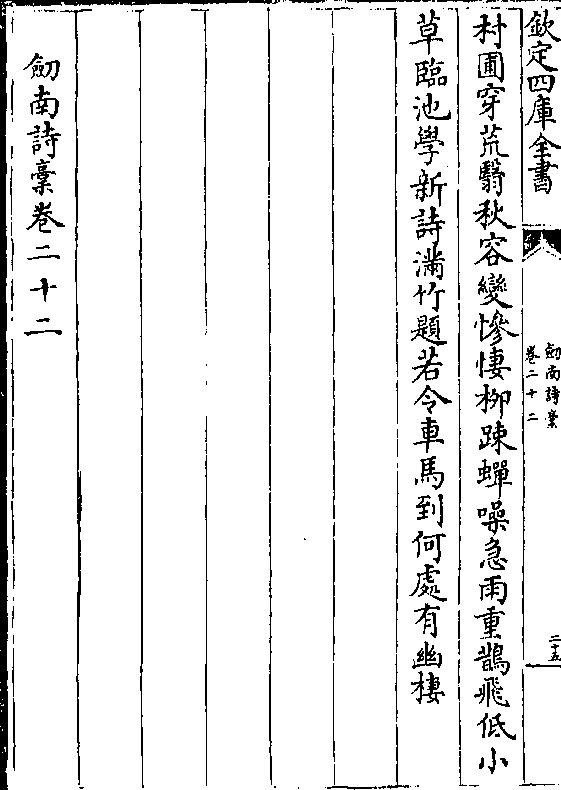 欽定四庫全書
劒南詩稾
卷二十二
二十五
村圃穿荒翳秋容變慘悽柳踈蟬噪急雨重鵲飛低小
草臨池學新詩滿竹題若令車馬到何處有幽棲
劒南詩稾卷二十二